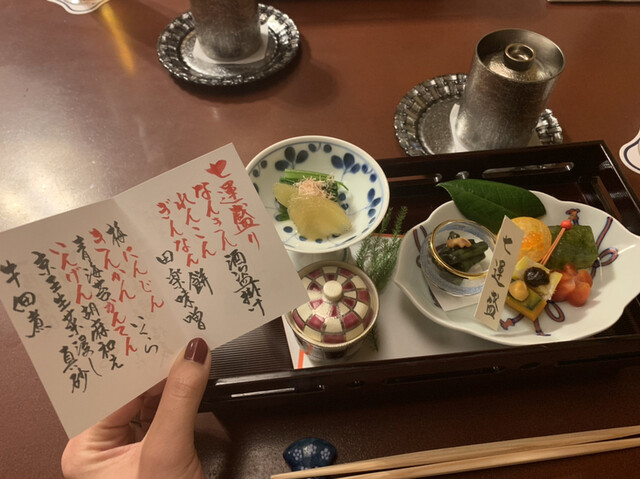 七運盛り
なんきん 酒盗掛け
れんこん餅
ぎんなん 田楽味噌
梅にんじん いくら
きんかん かんてん
青海苔 胡麻和え
いんげん
京壬生菜浸し 真砂
牛佃煮
七運盛